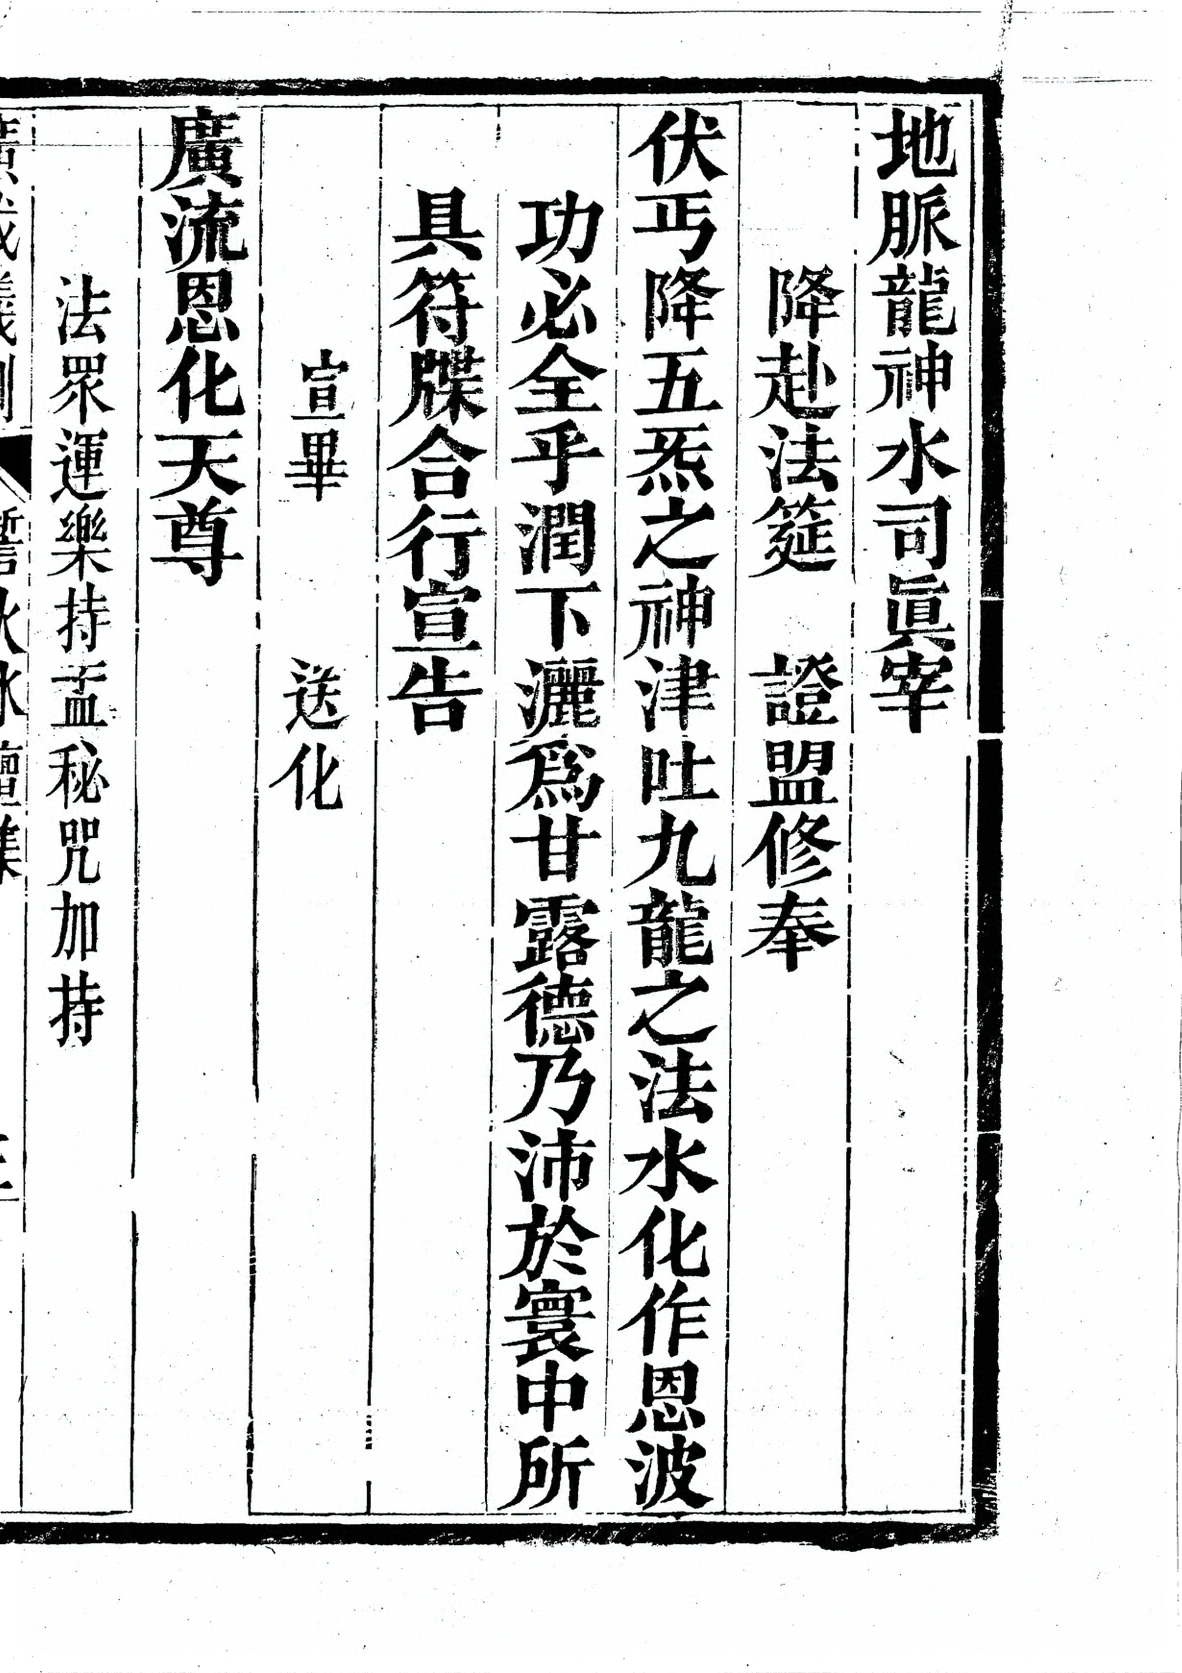 地脈龍神水司眞宰
降赴法筵　證盟修奉
伏丐降五炁之神津吐九龍之法水化作恩波
功必全乎潤下灑爲甘露德乃沛於寰中所
具符牒合行宣告
宣畢　　送化
廣流恩化天尊
法眾運樂持盂秘咒加持